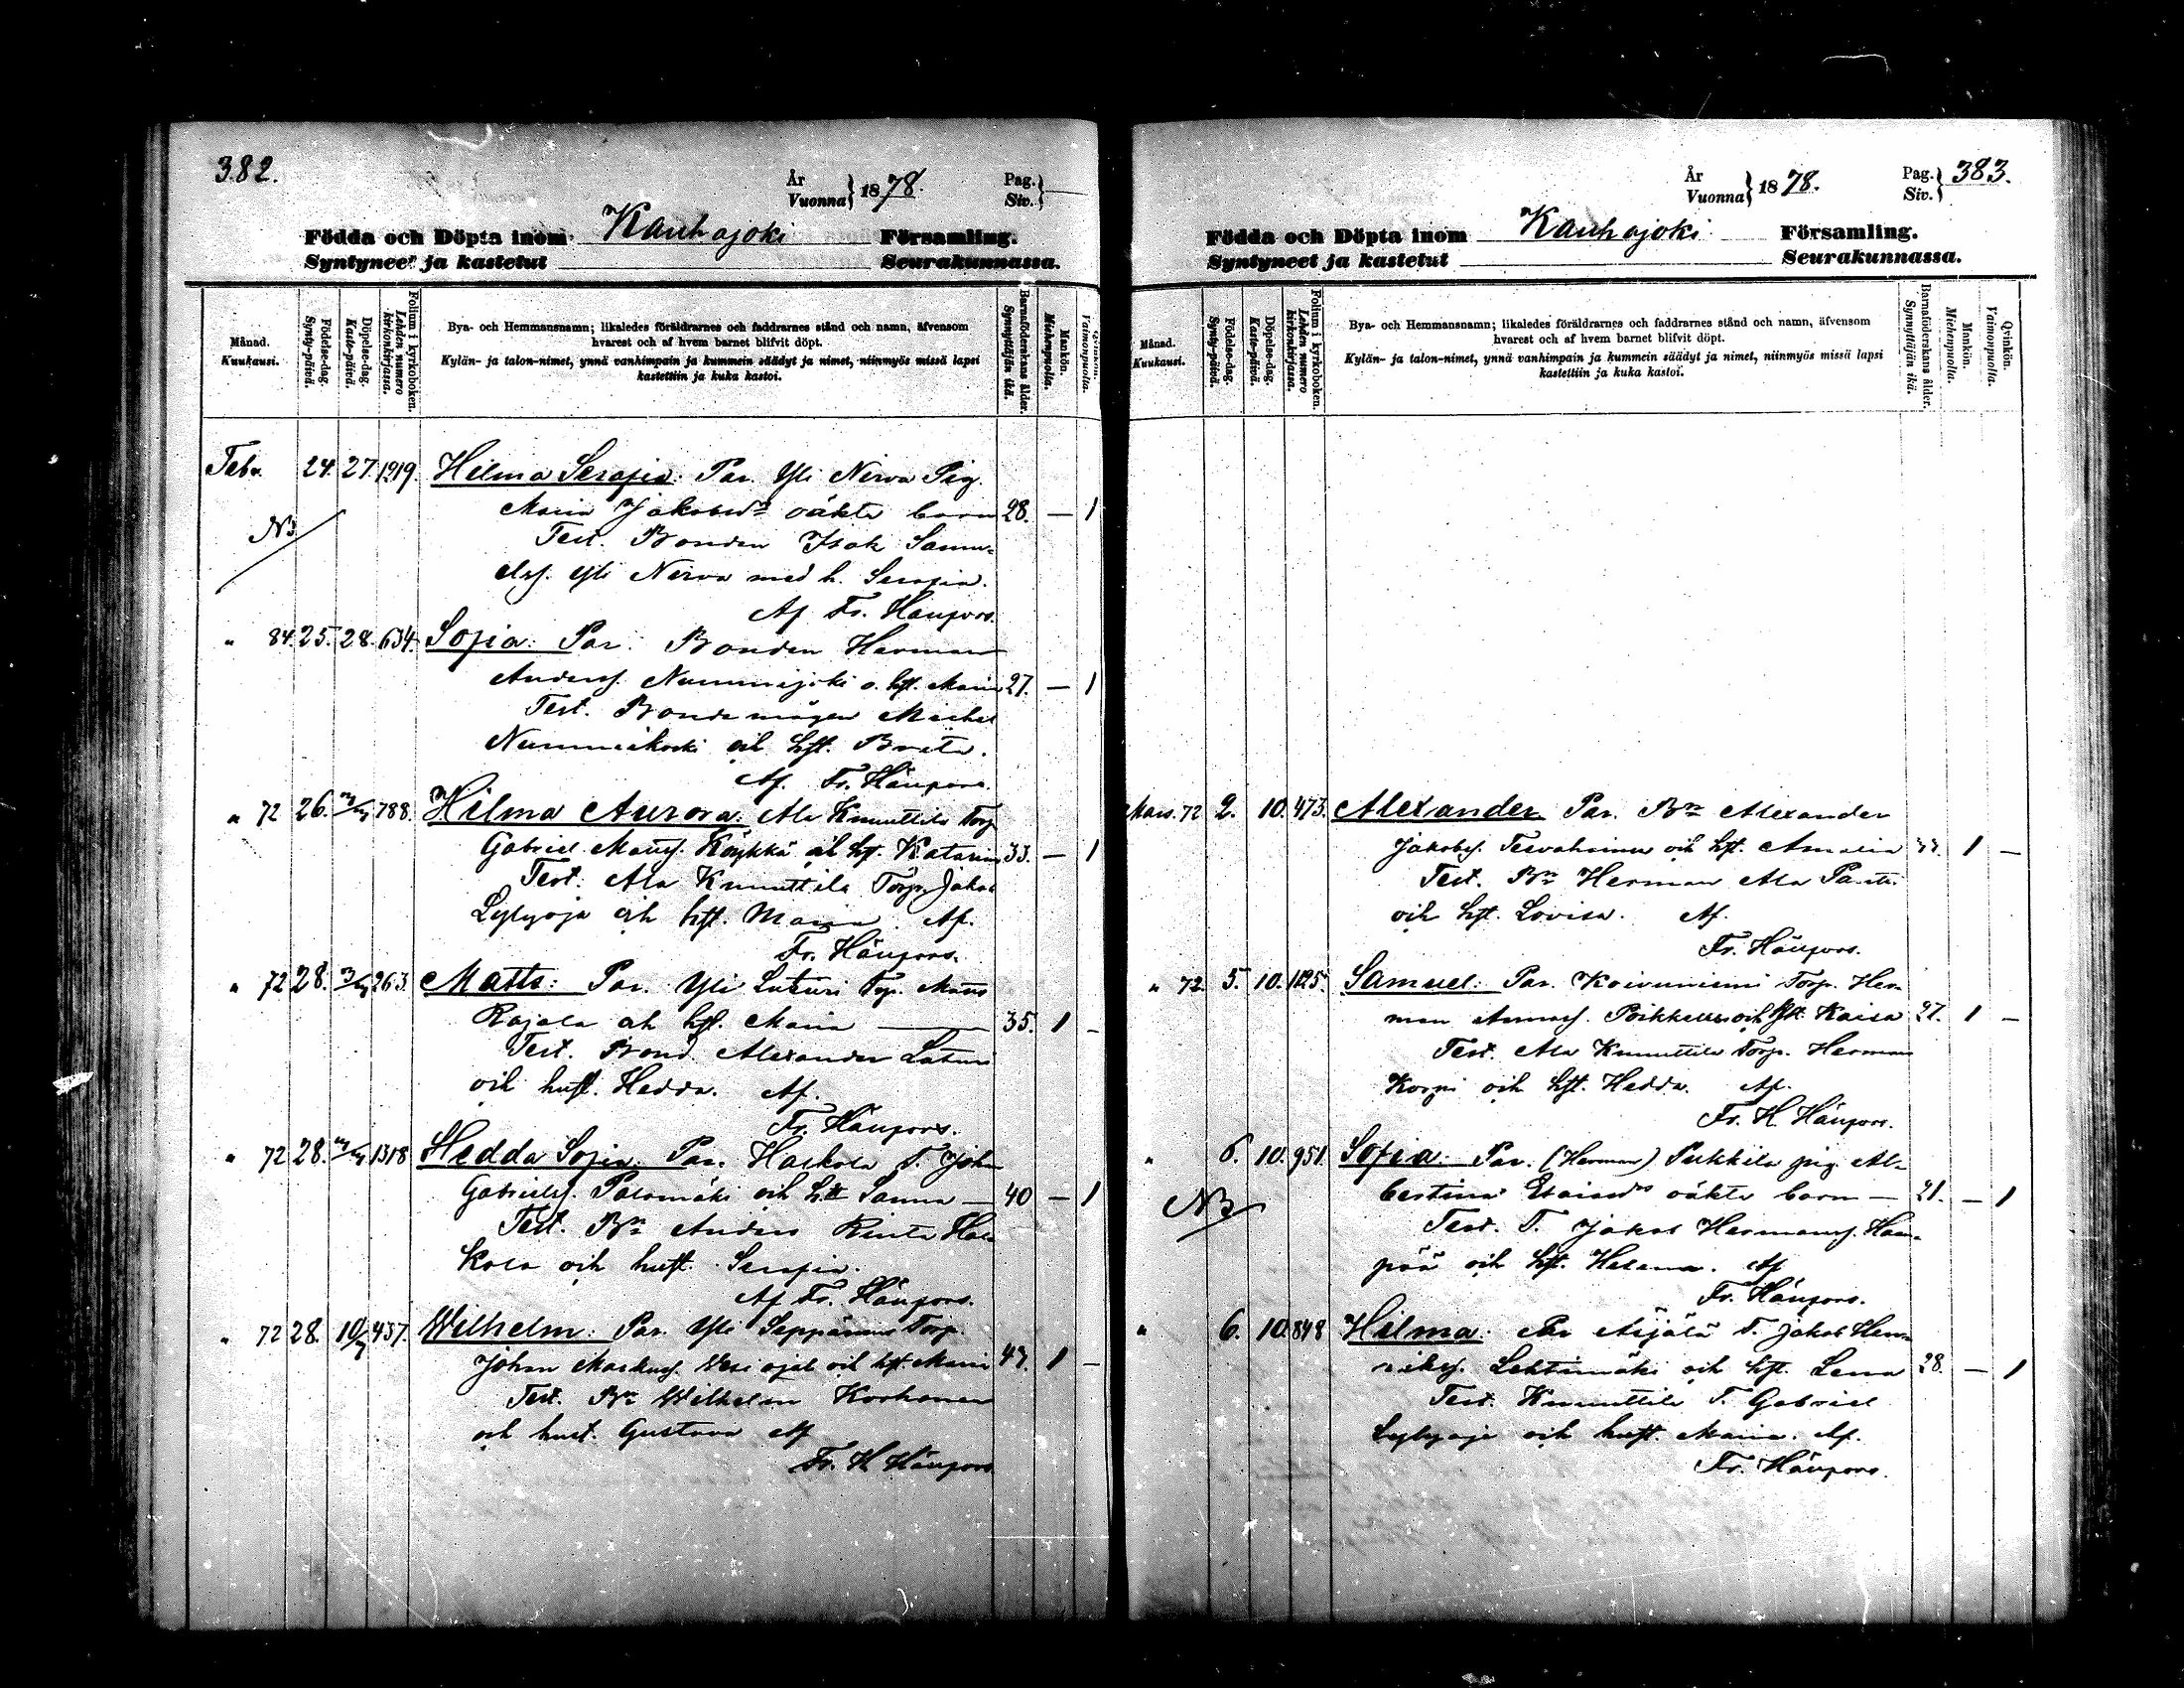 382.
År
Vuonna } 1878.
Pag.
Siv. }
Födda och Döpta inom Kauhajoki Församling.
Syntyneet ja kastetut Seurakunnassa.
Månad.
Kuukausi.
Födelse-dag.
Synty-päivä.
Döpelse-dag.
Kaste-päivä.
Folium i kyrkoboken.
Lehden numero kirkonkirjassa.
Bya- och Hemmansnamn; likaledes föräldrarnes och faddrarnes stånd och namn, äfvensom
hvarest och af hvem barnet blifvit döpt.
Kylän- ja talon-nimet, ynnä vanhimpain ja kummein säädyt ja nimet, niinmyös missä lapsi
kastettiin ja kuka kastoi.
Barnaföderskans ålder.
Synnyttäjän ikä.
Mankön.
Miehenpuolia.
Qvinkön.
Vaimonpuolia.
Febr. 24. 27. 1219. Hilma Serafia: Par. Yli Nirva Pig.
Maria Jakobsdr oäkta barn 28. — 1
NB
Test. Bonden Isak Samu-
elss. Yli Nirva med h. Serafia.
Af Fr. Häufvors.
" 84. 25. 28. 634. Sofia: Par. Bonden Herman
Anderss. Nummijoki o. hst. Maria 27. — 1
Test. Bondemågen Michel
Nummikoski och hst. Brita.
Af. Fr. Häufvors.
" 72 26. 788. Hilma Aurora: Ala Knuuttila Torp
Gabriel Matts. Köykkä och hst. Katarina 33. — 1
Test: Ala Knuuttila Torp. Jakob
Lylyoja och hst. Maria. Af.
Fr. Häufvors.
" 72 28. 263. Matts: Par. Yli Luturi Torp. Matts
Rajala och hst. Maria — 35. 1 —
Test. Bond. Alexander Luturi
och hust. Hedda. Af.
Fr. Häufvors.
" 72 28. 1318 Hedda Sofia: Par. Harkola T. Johan
Gabrielss. Palomäki och hst Sanna — 40 — 1
Test. Bn Anders Rinta Har
kola och hust. Serafia.
Af Fr. Häufvors.
" 72 28. 10/3 457. Wilhelm: Par. Yli Seppänen Torp.
Johan Markuss. Vesioja och hst. Maria 43. 1 —
Test. Bn Wilhelm Korhonen
och hust. Gustava Af
Fr. H Häufvors.
År
Vuonna } 1878.
Pag.
Siv. } 383.
Födda och Döpta inom Kauhajoki Församling.
Syntyneet ja kastetut Seurakunnassa.
Månad.
Kuukausi.
Födelse-dag.
Synty-päivä.
Döpelse-dag.
Kaste-päivä.
Folium i kyrkoboken.
Lehden numero kirkonkirjassa.
Bya- och Hemmansnamn; likaledes föräldrarnes och faddrarnes stånd och namn, äfvensom
hvarest och af hvem barnet blifvit döpt.
Kylän- ja talon-nimet, ynnä vanhimpain ja kummein säädyt ja nimet, niinmyös missä lapsi
kastettiin ja kuka kastoi.
Barnaföderskans ålder.
Synnyttäjän ikä.
Mankön.
Miehenpuolia.
Qvinkön.
Vaimonpuolia.
Mars. 72 2. 10. 473. Alexander Par. Bn Alexander
Jakobss. och hst. Amalia 1 —
Test. Bn Herman Ala Pantti
och hst. Lovisa. Af.
Fr. Häufvors.
" 72. 5. 10. 1125. Samuel: Par. Koivuniemi Torp. Her
man och hst. Kaisa 27. 1 —
Test. Ala Knuuttila Torp. Herman
Korpi och hst. Hedda. Af.
Fr. H. Häufvors.
" 6. 10. 951. Sofia: Par. (Herman) Pukkila pig. Al-
bertina Esaiasdr oäkta barn — 21. — 1
NB
Test. T. Jakob Hermanss. Haa-
pää och hst. Helena. Af
Fr. Häufvors.
" 6. 10. 848 Hilma: Par Äijälä T. Jakob Hen
rikss. Lehtimäki och hst. Lena 28. — 1
Test. Knuuttila T. Gabriel
Lylyoja och hust. Maria. Af.
Fr. Häufvors.